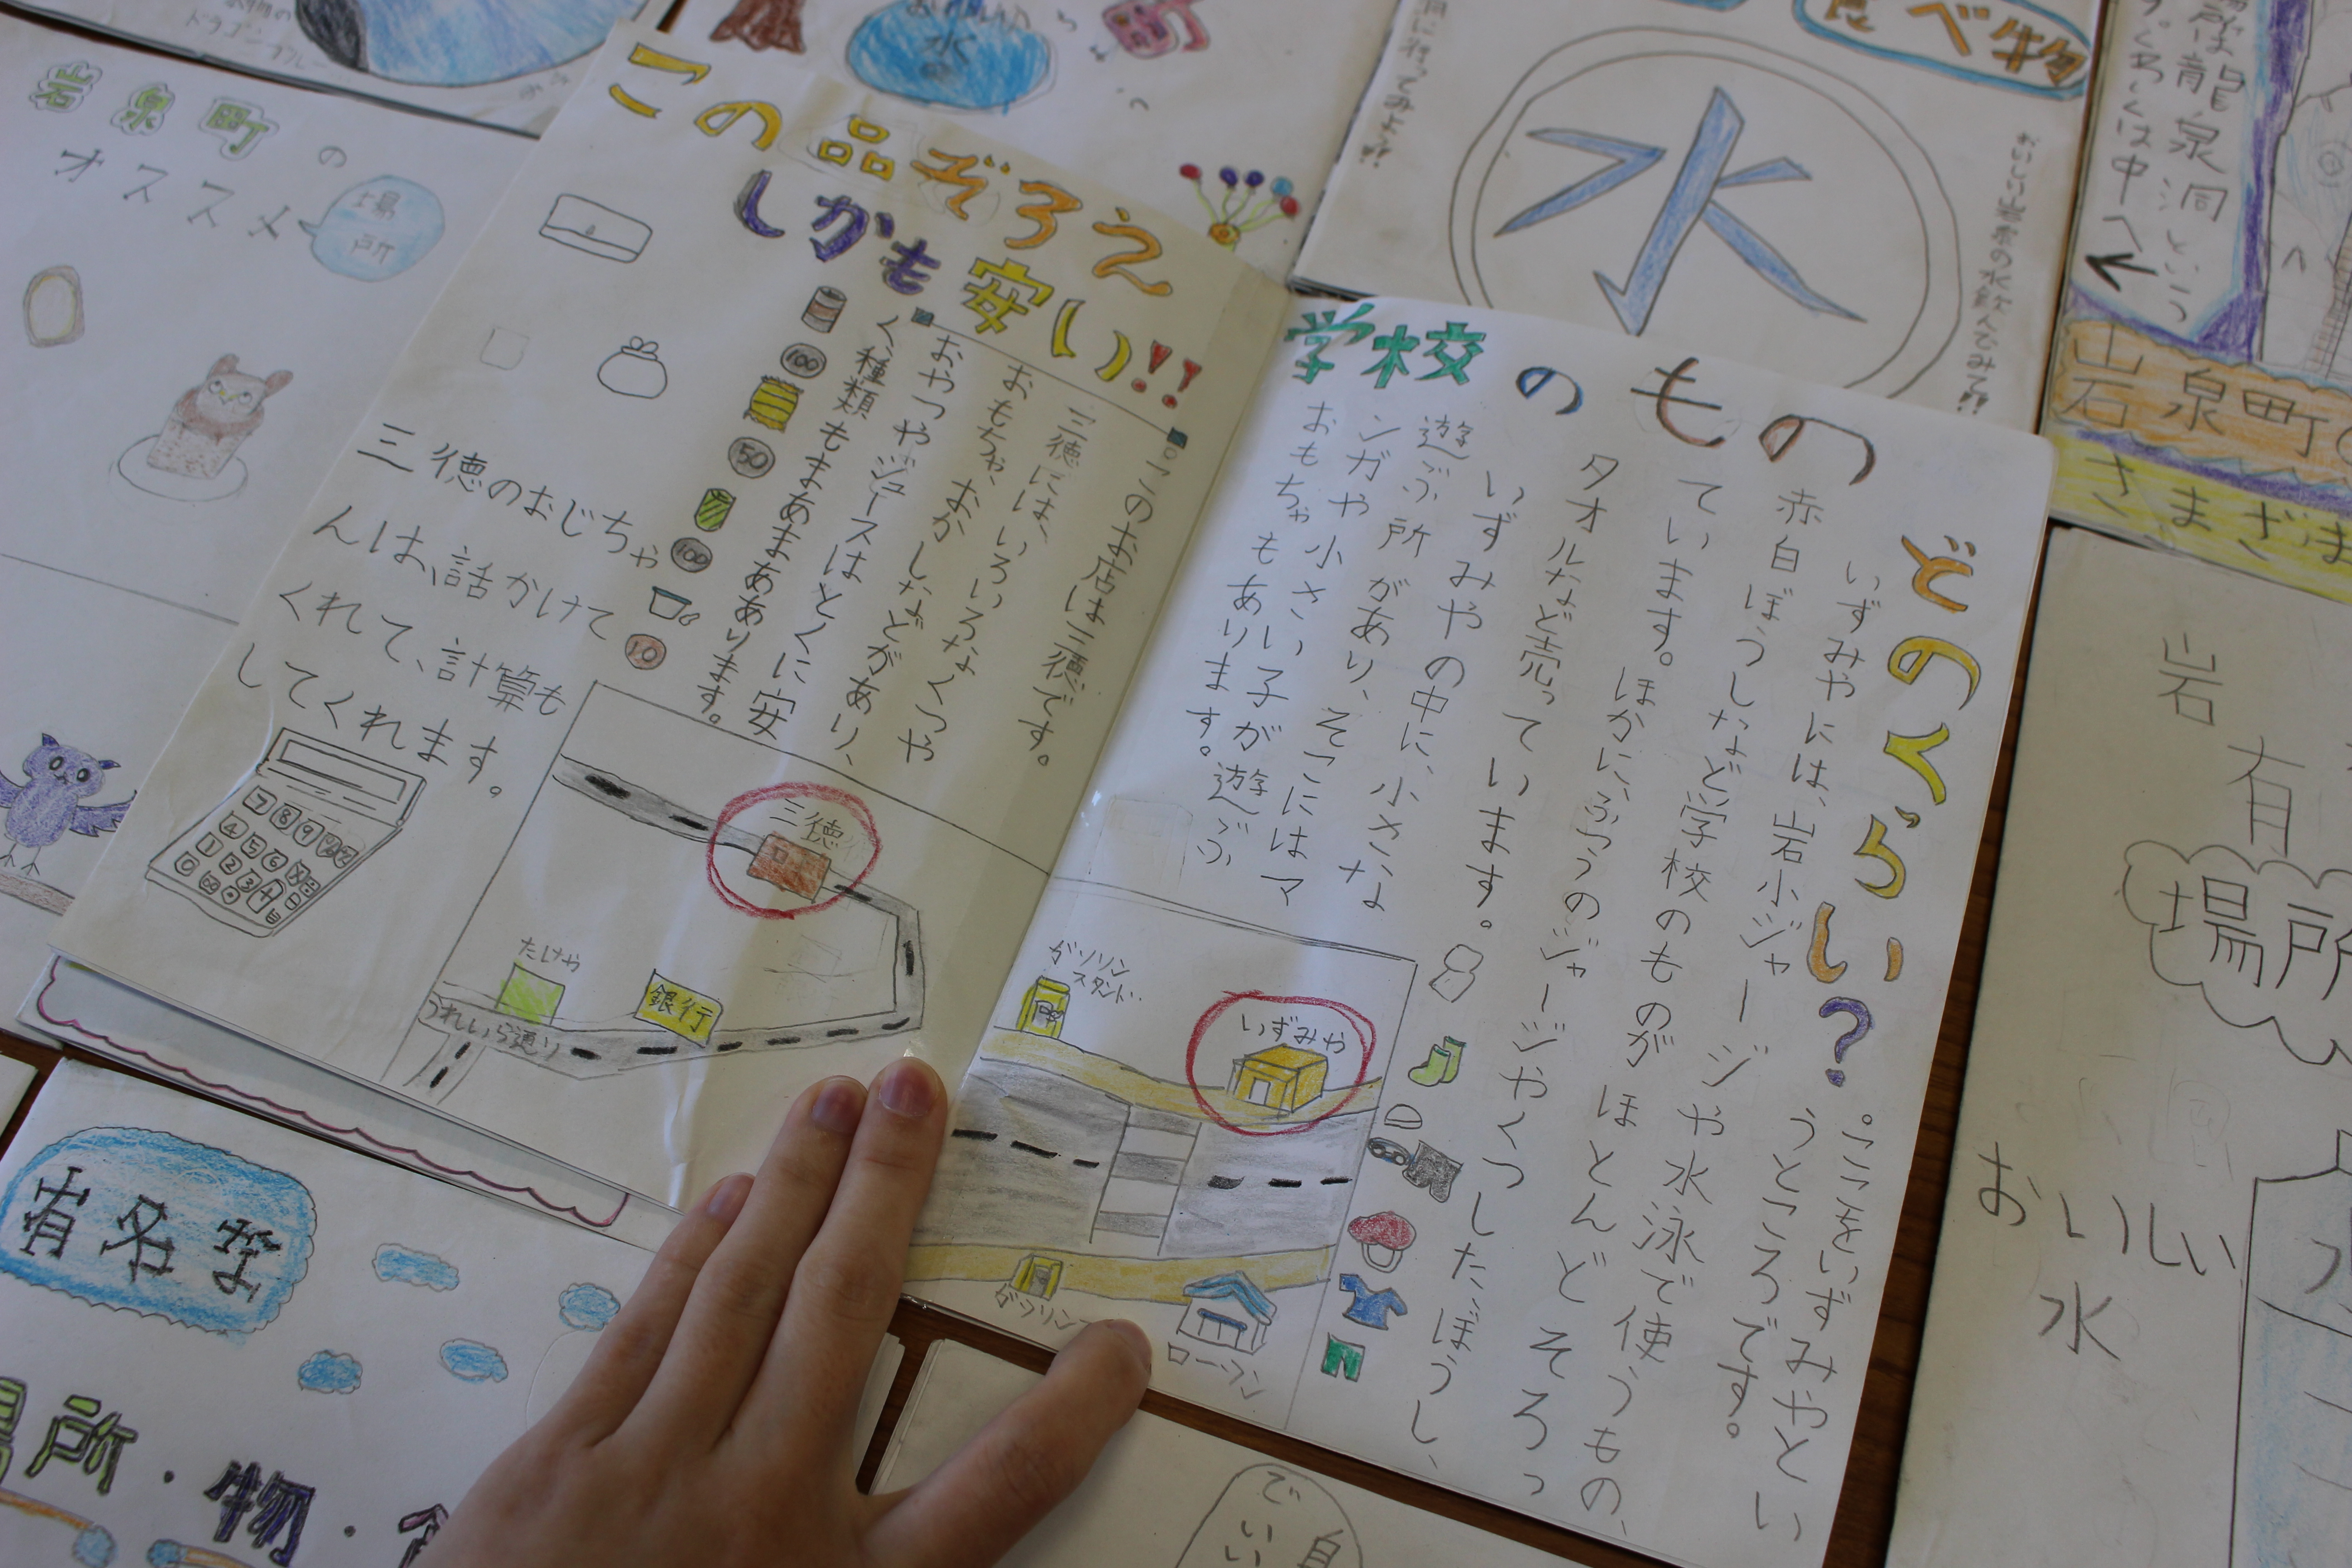 学校のもの
どのくらい?
ここをいずみやとい
うところです。
いずみやには、岩小ジャージや水泳で使うもの、
赤白ぼうしなど学校のものがほとんどそろっ
ています。ほかに、ふつうのジャージやくつしたぼうし、
タオルなど売っています。
いずみやの中に、小さな
遊ぶ所があり、そこにはマ
ンガや小さい子が遊ぶ
おもちゃもあります。
ガソリン
スタンド
いずみや
ローソン
この品ぞろえ
しかも安い!!
このお店は三徳です。
三徳には、いろいろなくつや
おもちゃ、おかしなどがあり、
おやつやジュースはとくに安
く種類もまあまああります。
100
50
100
10
三徳のおじちゃ
んは、話かけて
くれて、計算も
してくれます。
7 8 9
4 5 6
1 2 3
0
三徳
たけや
銀行
うれいら通り
岩泉町の
オススメ
場所
ドラゴンブルー
水
食べ物
水
おいしい岩泉の水飲んでみて!!
場所は龍泉洞という
くわしくは中へ
岩泉町の
さまざま
岩
有
場所
おいしい
水
有名な
場所・物・食